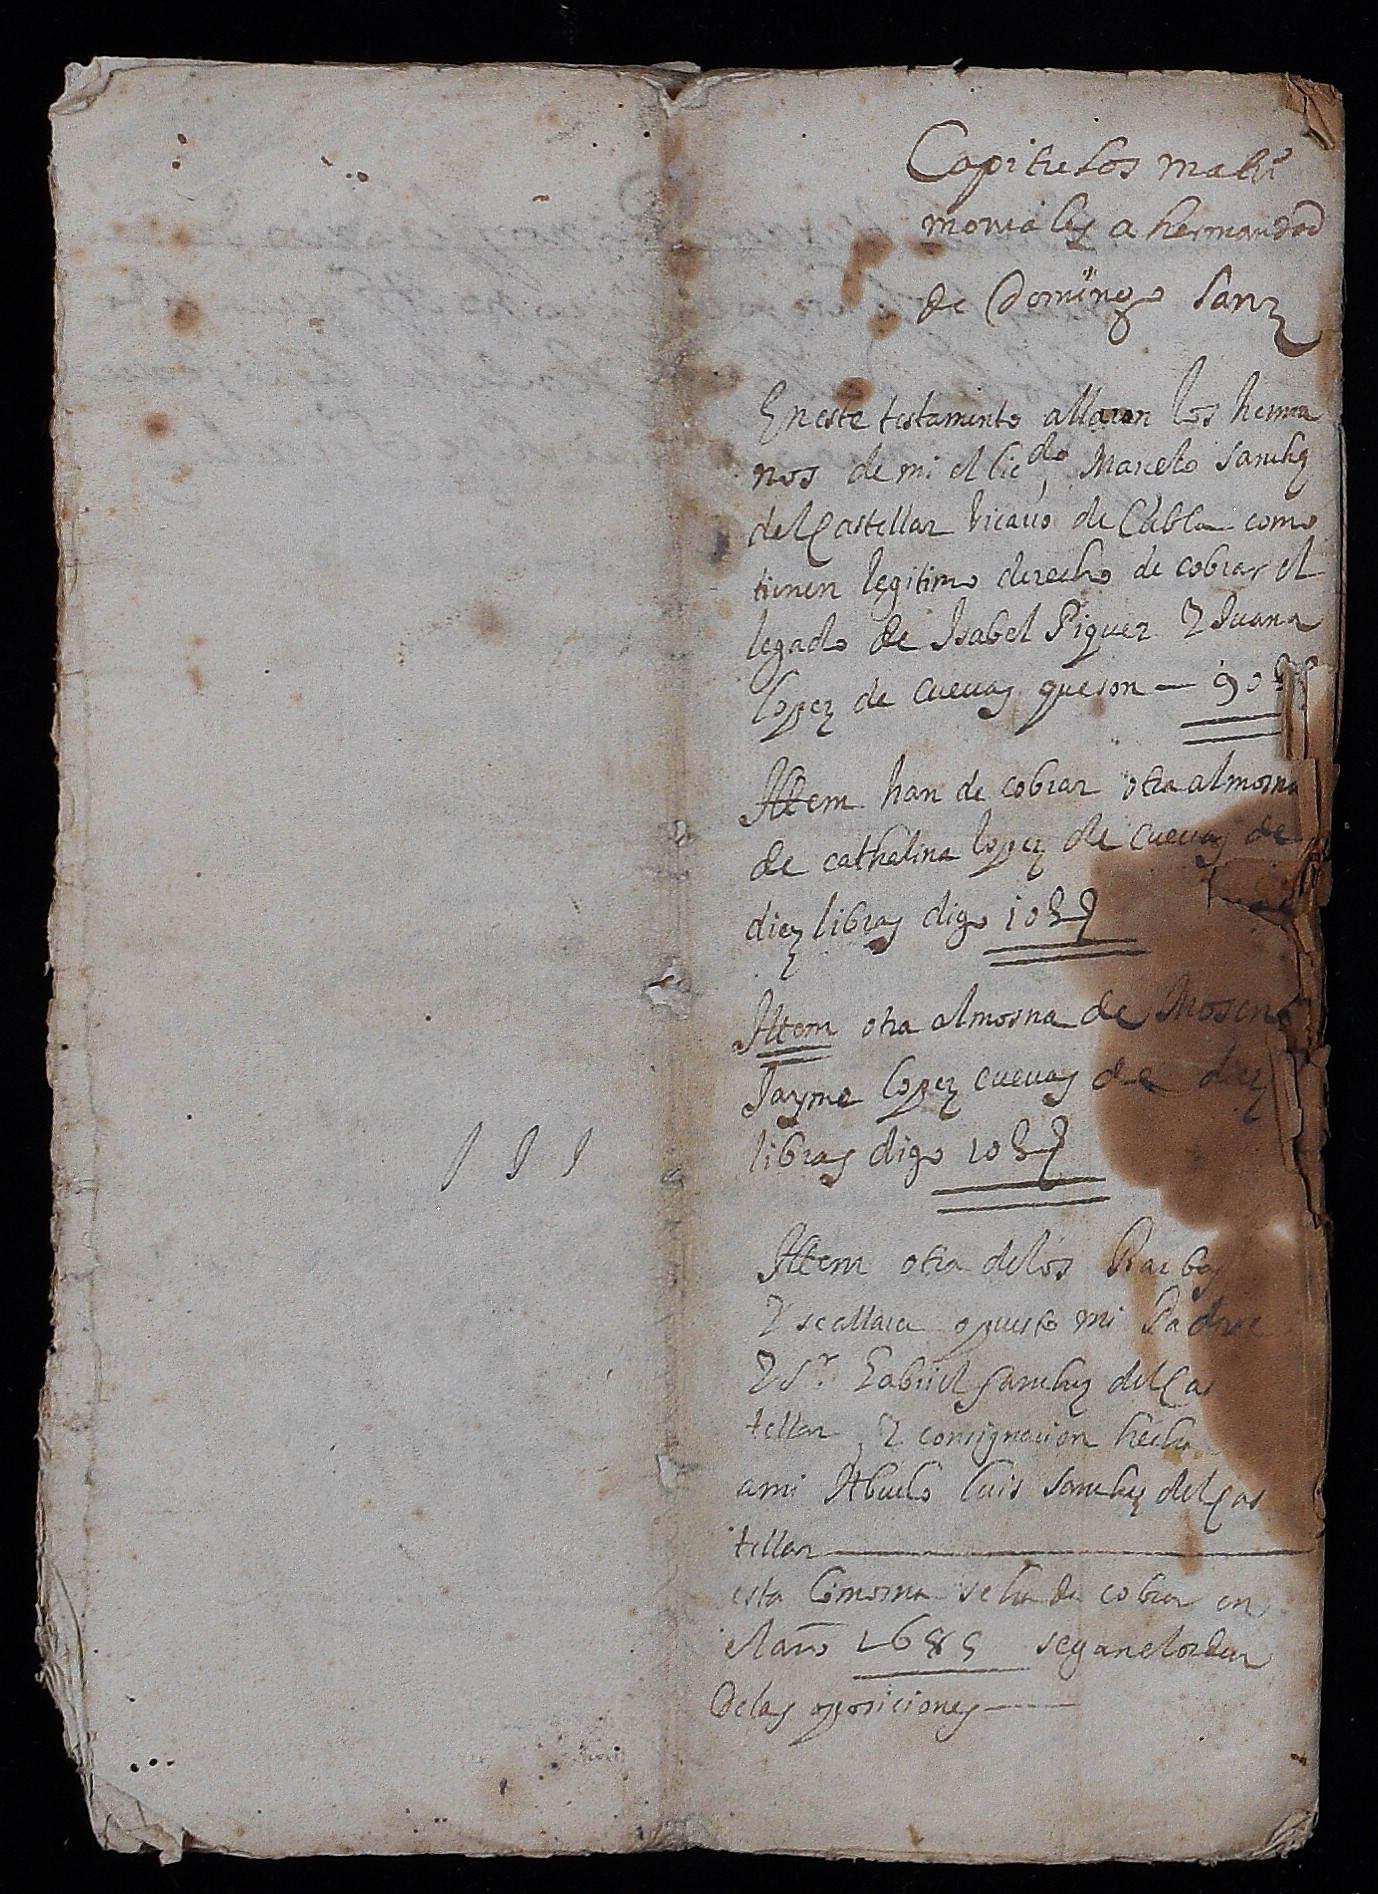 Capitulos matri
moniales a hermandad
de Domingo Sanz
En este testamento allaran los herma
nos de mi el lic.do Marcelo Sanchez
del Castellar Vicario de Cubla como
tienen legitimo derecho de cobrar el
legado de Isabel Piquer Y Juana
Lopez de Cuevas que son — 90
Ittem han de cobrar otra almosna
de Cathelina Lopez de Cuevas de
diez libras digo 10 L
Ittem otra almosna de Mosen
Jayme Lopez Cuevas de diez
libras digo 10 L
Ittem otra de los
Y se allara opuesto mi Padre
Y Sr. Gabriel Sanchez del Cas
tellar Y consignacion hecha
a mi Abuelo Luis Sanchez del Cas
tellar
esta limosna se ha de cobrar en
el año 1685 segun el orden
De las oposiciones